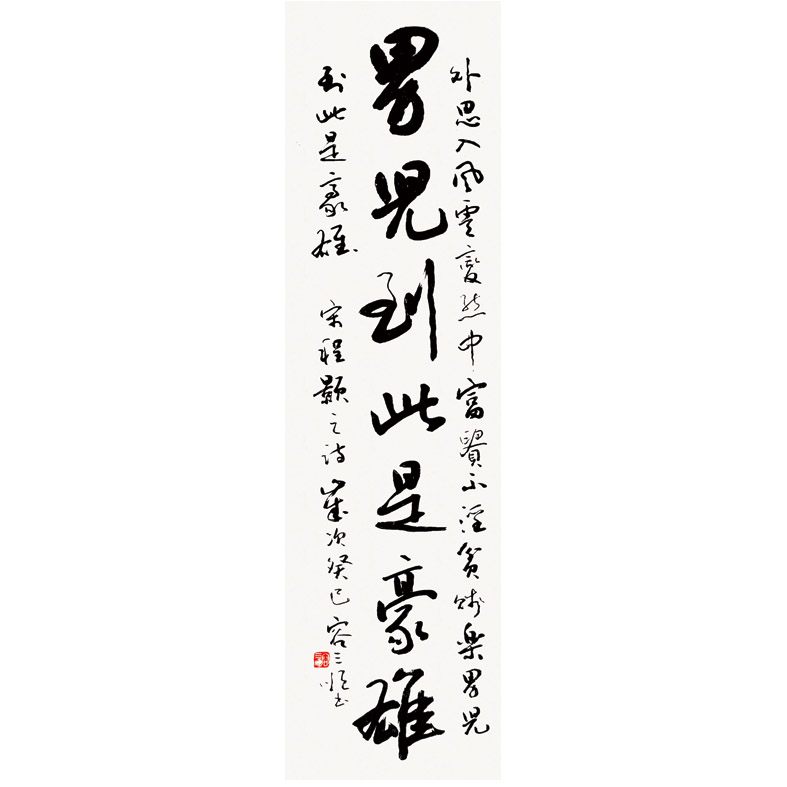 外思入風雲變態中富貴不淫貧賤樂男兒
男兒到此是豪雄
到此是豪雄 宋程顥之詩 歲次癸巳 容三書